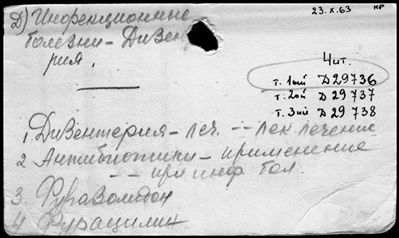 23.X.63 НР
Д) Инфекционные
болезни - Дизент
рия.
Чит.
т. 1ый Д29736
т. 2ой Д29737
т. 3ий Д29738
1. Дизентерия - леч. -- лек. лечение
2 Антибиотики - применение
-- при инф. бол.
3. Фуразолидон
4 Фурацилин